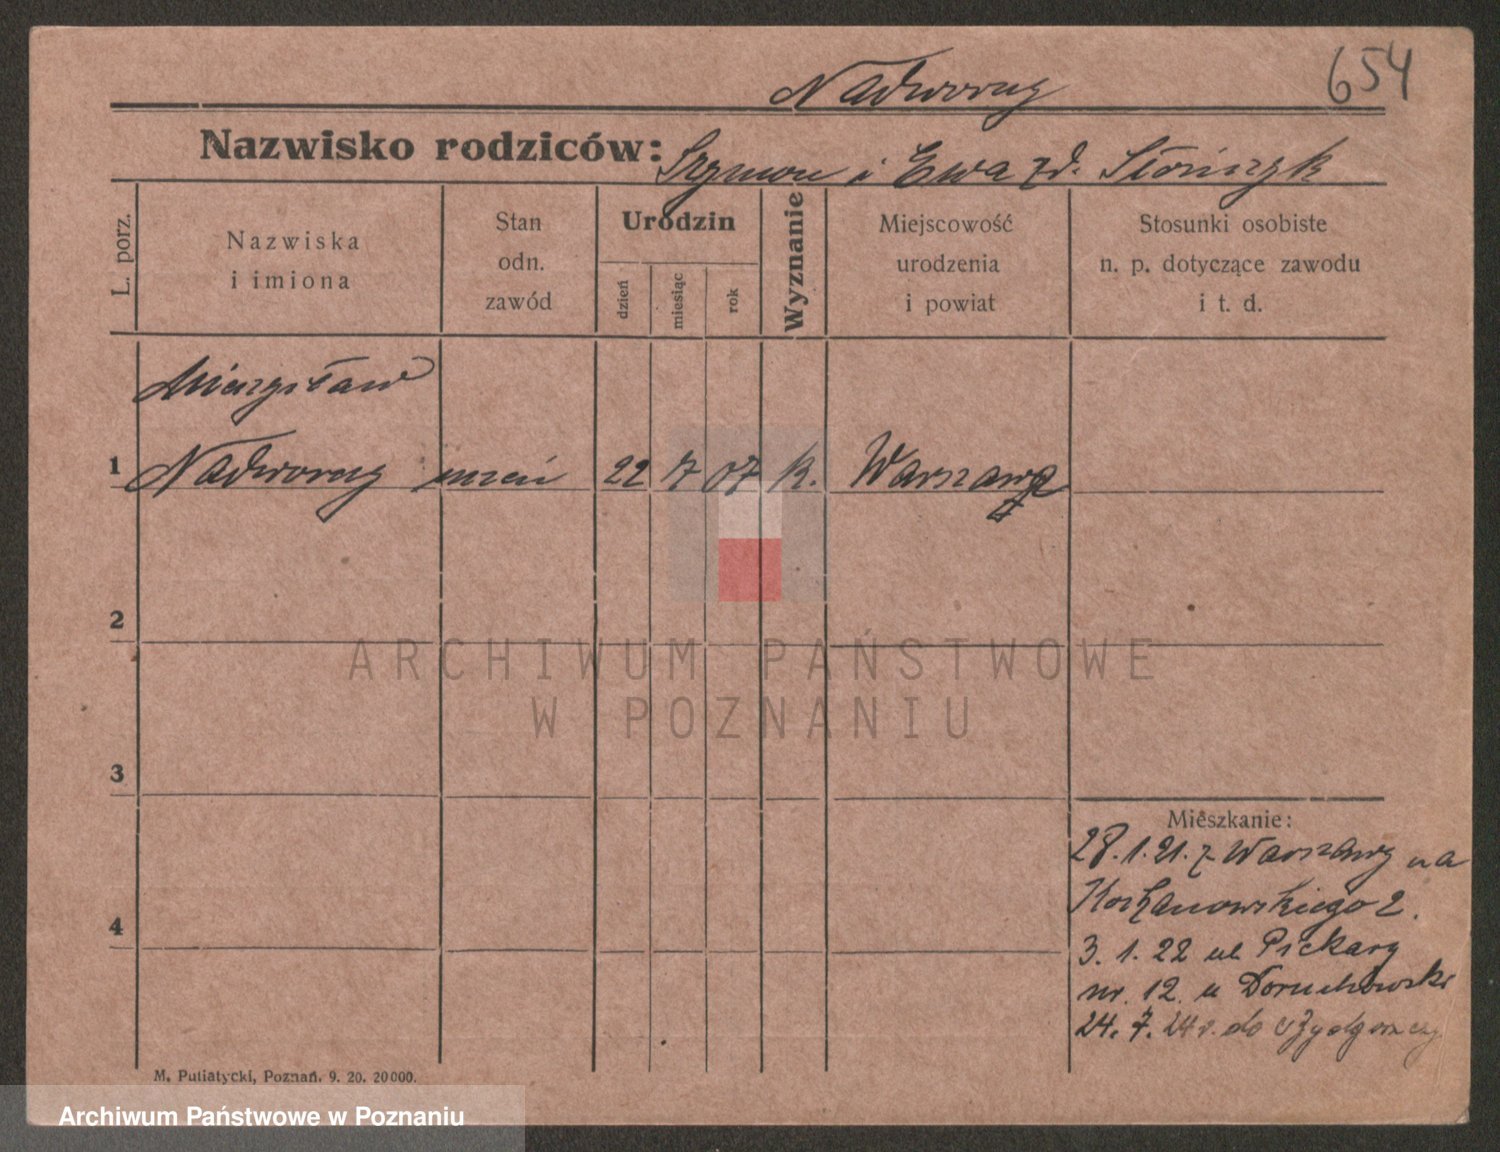 654
Nadworny
Nazwisko rodziców: Szymon i Ewa zd. Słończyk
L. porz.
Nazwiska
i imiona
Stan
odn.
zawód
Urodzin
dzień
miesiąc
rok
Wyznanie
Miejscowość
urodzenia
i powiat
Stosunki osobiste
n. p. dotyczące zawodu
i t. d.
Mieczysław
1 Nadworny uczeń 22 7 07 k. Warszawa
2
3
4
ARCHIWUM PAŃSTWOWE
W POZNANIU
Mieszkanie:
28.1.21. z Warszawy na
Kochanowskiego 2.
3. 1. 22 ul Piekary
nr. 12. u Doruchowski
24. 7. 24 r. do Bydgoszczy
M. Putiatycki, Poznań. 9. 20. 20000.
Archiwum Państwowe w Poznaniu